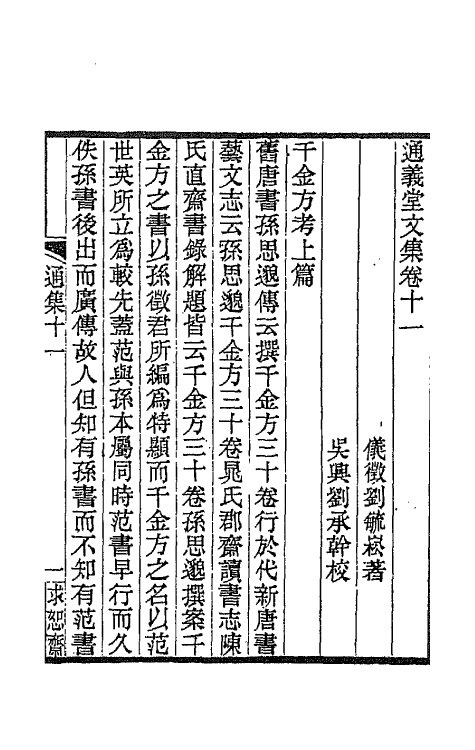 通義堂文集卷十一
儀徵劉毓崧著
吳興劉承幹校
千金方考上篇
舊唐書孫思邈傳云撰千金方三十卷行於代新唐書
藝文志云孫思邈千金方三十卷晁氏郡齋讀書志陳
氏直齋書錄解題皆云千金方三十卷孫思邈撰案千
金方之書以孫徵君所編爲特顯而千金方之名以范
世英所立爲較先蓋范與孫本屬同時范書早行而久
佚孫書後出而廣傳故人但知有孫書而不知有范書
通集十一
一
求恕齋